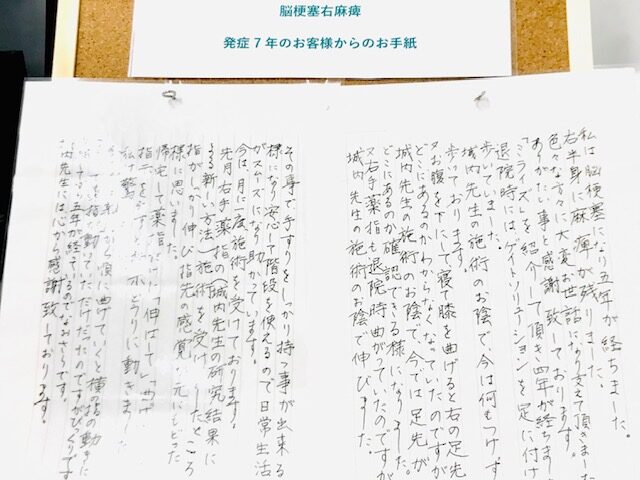 脳梗塞右麻痺
発症7年のお客様からのお手紙
私は脳梗塞になり五年が経ちました。
右半身に麻痺が残りました。
色々な方々に大変お世話になり支えて頂きました
ありがたい事と感謝致しております。
「ミライズ」を紹介して頂き四年が経ちまし
退院時にはゲイトソリューションを足に付け
歩いていました。
城内先生の施術のお陰で、今は何もつけず
歩いております。
又お腹を下にして寝て膝を曲げると右の足先
どこにあるのかわからなくなっていたのですが
城内先生の施術のお陰で、今では足先が
どこにあるのか確認できる様になりました。
又右手薬指も退院時曲がっていたのですが
城内先生の施術のお陰で伸びました。
その事で手すりをしっかり持つ事が出来る
様になり安心して階段を使えるので日常生活
がスムーズになり助かっています。
今は、月に 度施術を受けております。
先月右手薬指の城内先生の研究結果に
よる新しい方法で施術を受けましたところ
指がしっかり伸び指先の感覚が元にもどった
様に思いました。
帰宅して薬指だけに「伸ばして」「曲げ
指 どうりに動きました
私 驚
から順に曲げていくと種の指の動きに
指 動いていただけだったのですがびっくりです
五年が経ているのでなおさらです。
城内先生には心から感謝致しております。